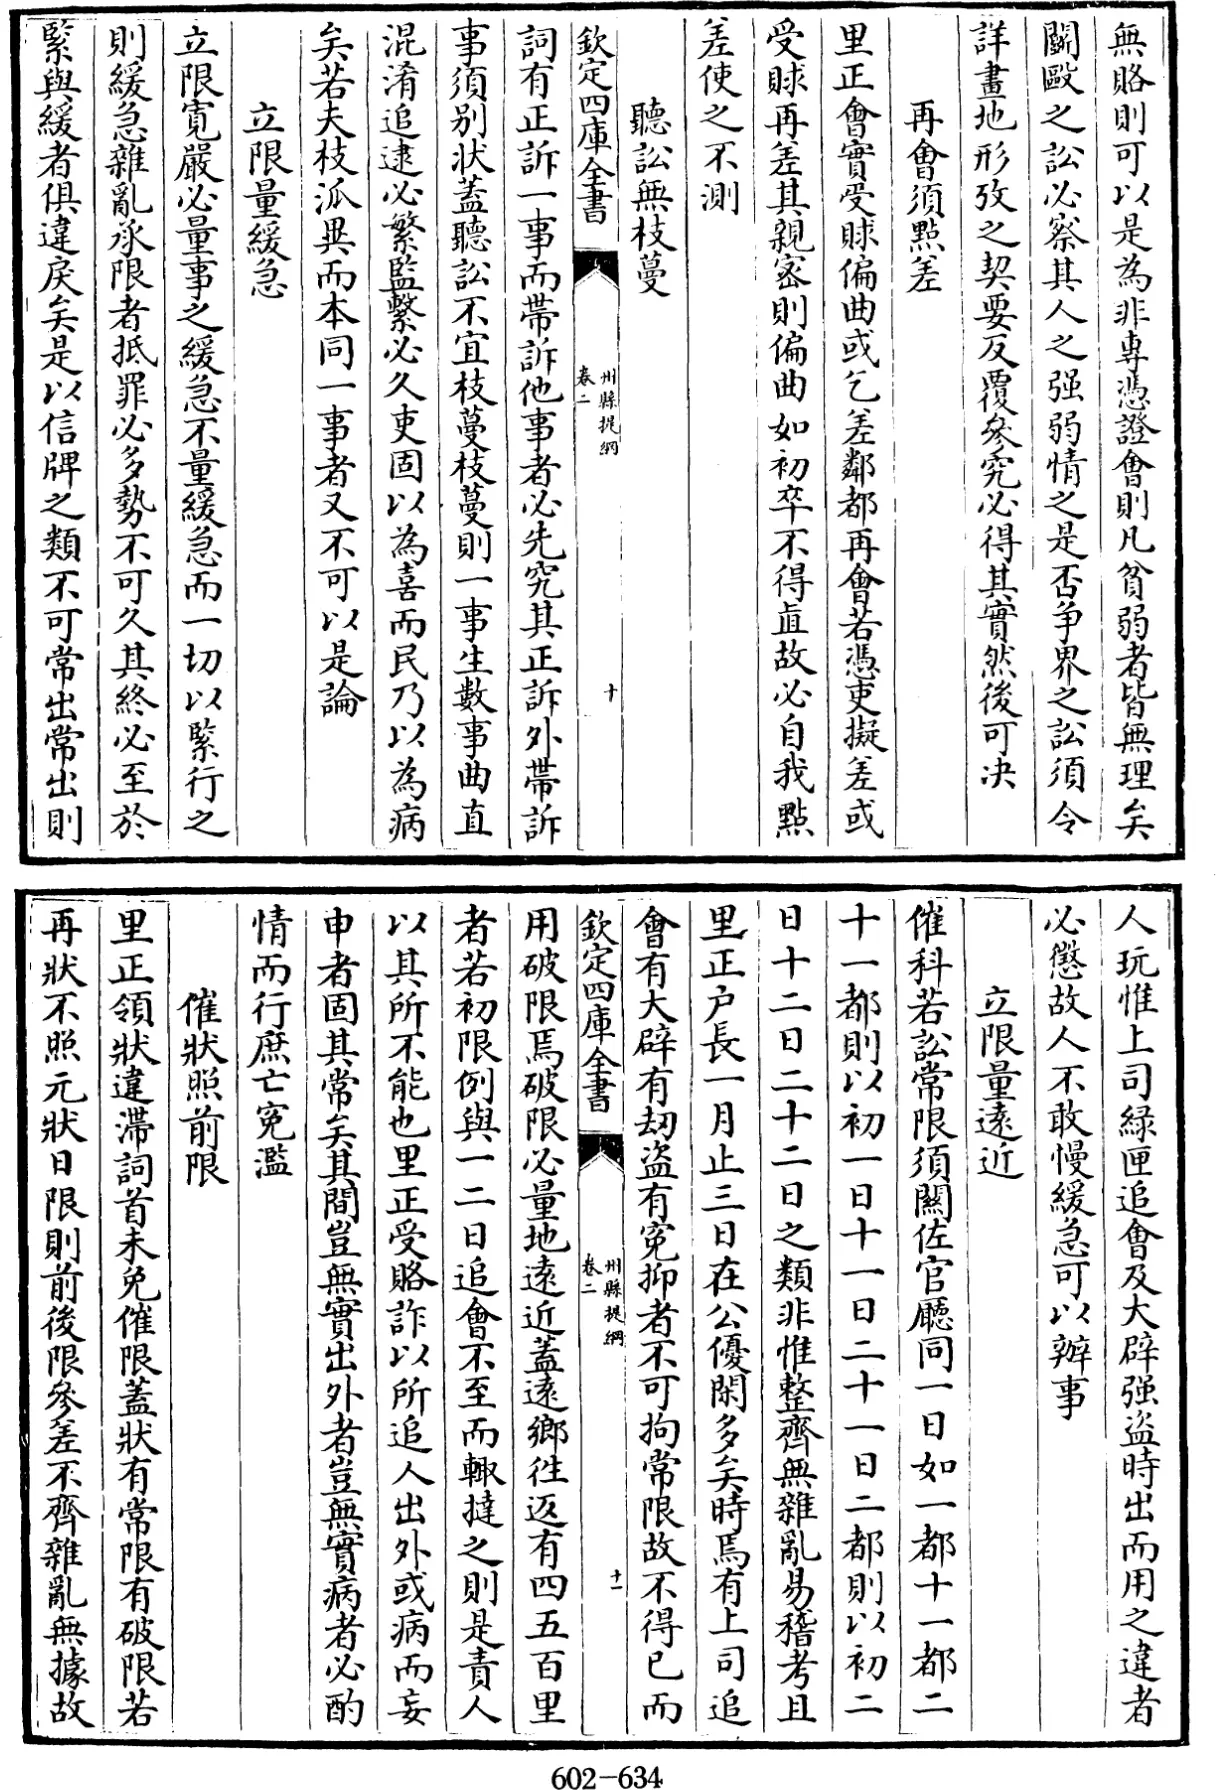 無賂則可以是為非專憑證會則凡貧弱者皆無理矣
鬬毆之訟必察其人之强弱情之是否争界之訟須令
詳畫地形攷之契要反覆參究必得其實然後可决
再會須點差
里正會實受賕偏曲或乞差鄰都再會若憑吏擬差或
受賕再差其親宻則偏曲如初卒不得直故必自我點
差使之不測
聽訟無枝蔓
欽定四庫全書
州縣提綱
卷二
十
詞有正訴一事而帶訴他事者必先究其正訴外帶訴
事須别狀蓋聽訟不宜枝蔓枝蔓則一事生數事曲直
混淆追逮必繁監繫必久吏固以為喜而民乃以為病
矣若夫枝派異而本同一事者又不可以是論
立限量緩急
立限寛嚴必量事之緩急不量緩急而一切以緊行之
則緩急雜亂承限者抵罪必多勢不可久其終必至於
緊與緩者俱違戾矣是以信牌之類不可常出常出則
人玩惟上司緑匣追會及大辟强盗時出而用之違者
必懲故人不敢慢緩急可以辦事
立限量逺近
催科若訟常限須關佐官廳同一日如一都十一都二
十一都則以初一日十一日二十一日二都則以初二
日十二日二十二日之類非惟整齊無雜亂易稽考且
里正户長一月止三日在公優閑多矣時焉有上司追
會有大辟有刼盗有寃抑者不可拘常限故不得已而
欽定四庫全書
州縣提綱
卷二
十一
用破限焉破限必量地逺近蓋逺鄉徃返有四五百里
者若初限例與一二日追會不至而輙撻之則是責人
以其所不能也里正受賂詐以所追人出外或病而妄
申者固其常矣其間豈無實出外者豈無實病者必酌
情而行庶亡寃濫
催狀照前限
里正領狀違滯詞首未免催限蓋狀有常限有破限若
再狀不照元狀日限則前後限參差不齊雜亂無據故
602-634